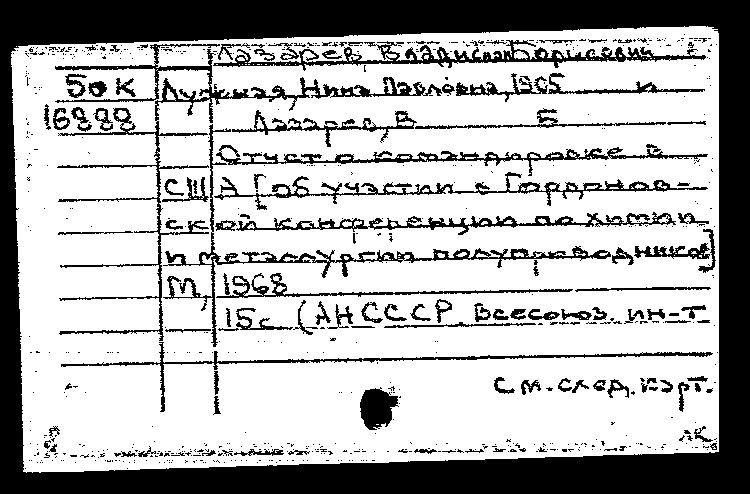 Лазарев, Владислав Борисович
50К Лужная, Нина Павловна, 1905 и
16888 Лазарев, В Б
Отчет о командировке в
США [об участии в Гордонов-
ской конференции по химии
и металлургии полупроводников]
М, 1968
15с (АН СССР. Всесоюз. ин-т
см. след. карт.